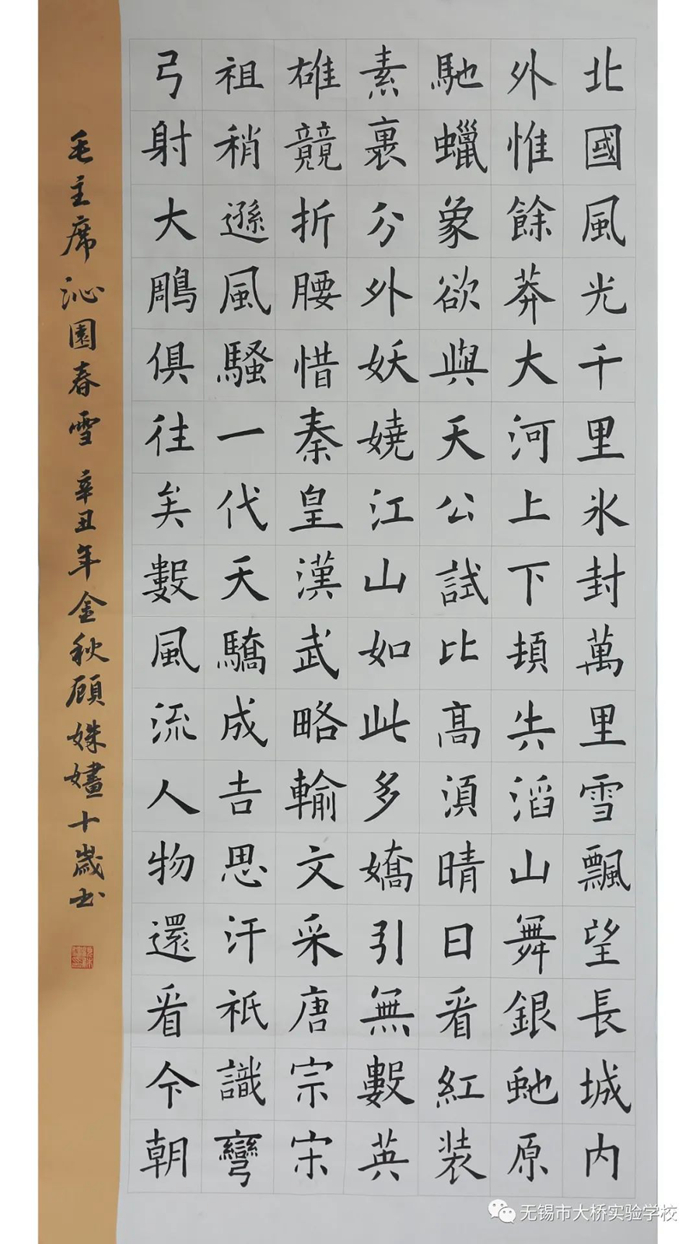 北國風光千里氷封萬里雪飄望長城内
外惟餘莽大河上下頓失滔山舞銀虵原
馳蠟象欲與天公試比高湏晴日看紅装
素裹分外妖嬈江山如此多嬌引無數英
雄競折腰惜秦皇漢武略輸文采唐宗宋
祖稍遜風騷一代天驕成吉思汗祇識彎
弓射大鵰俱往矣數風流人物還看今朝
毛主席沁園春雪 辛丑年金秋顾姝嫿十歲书
无锡市大桥实验学校